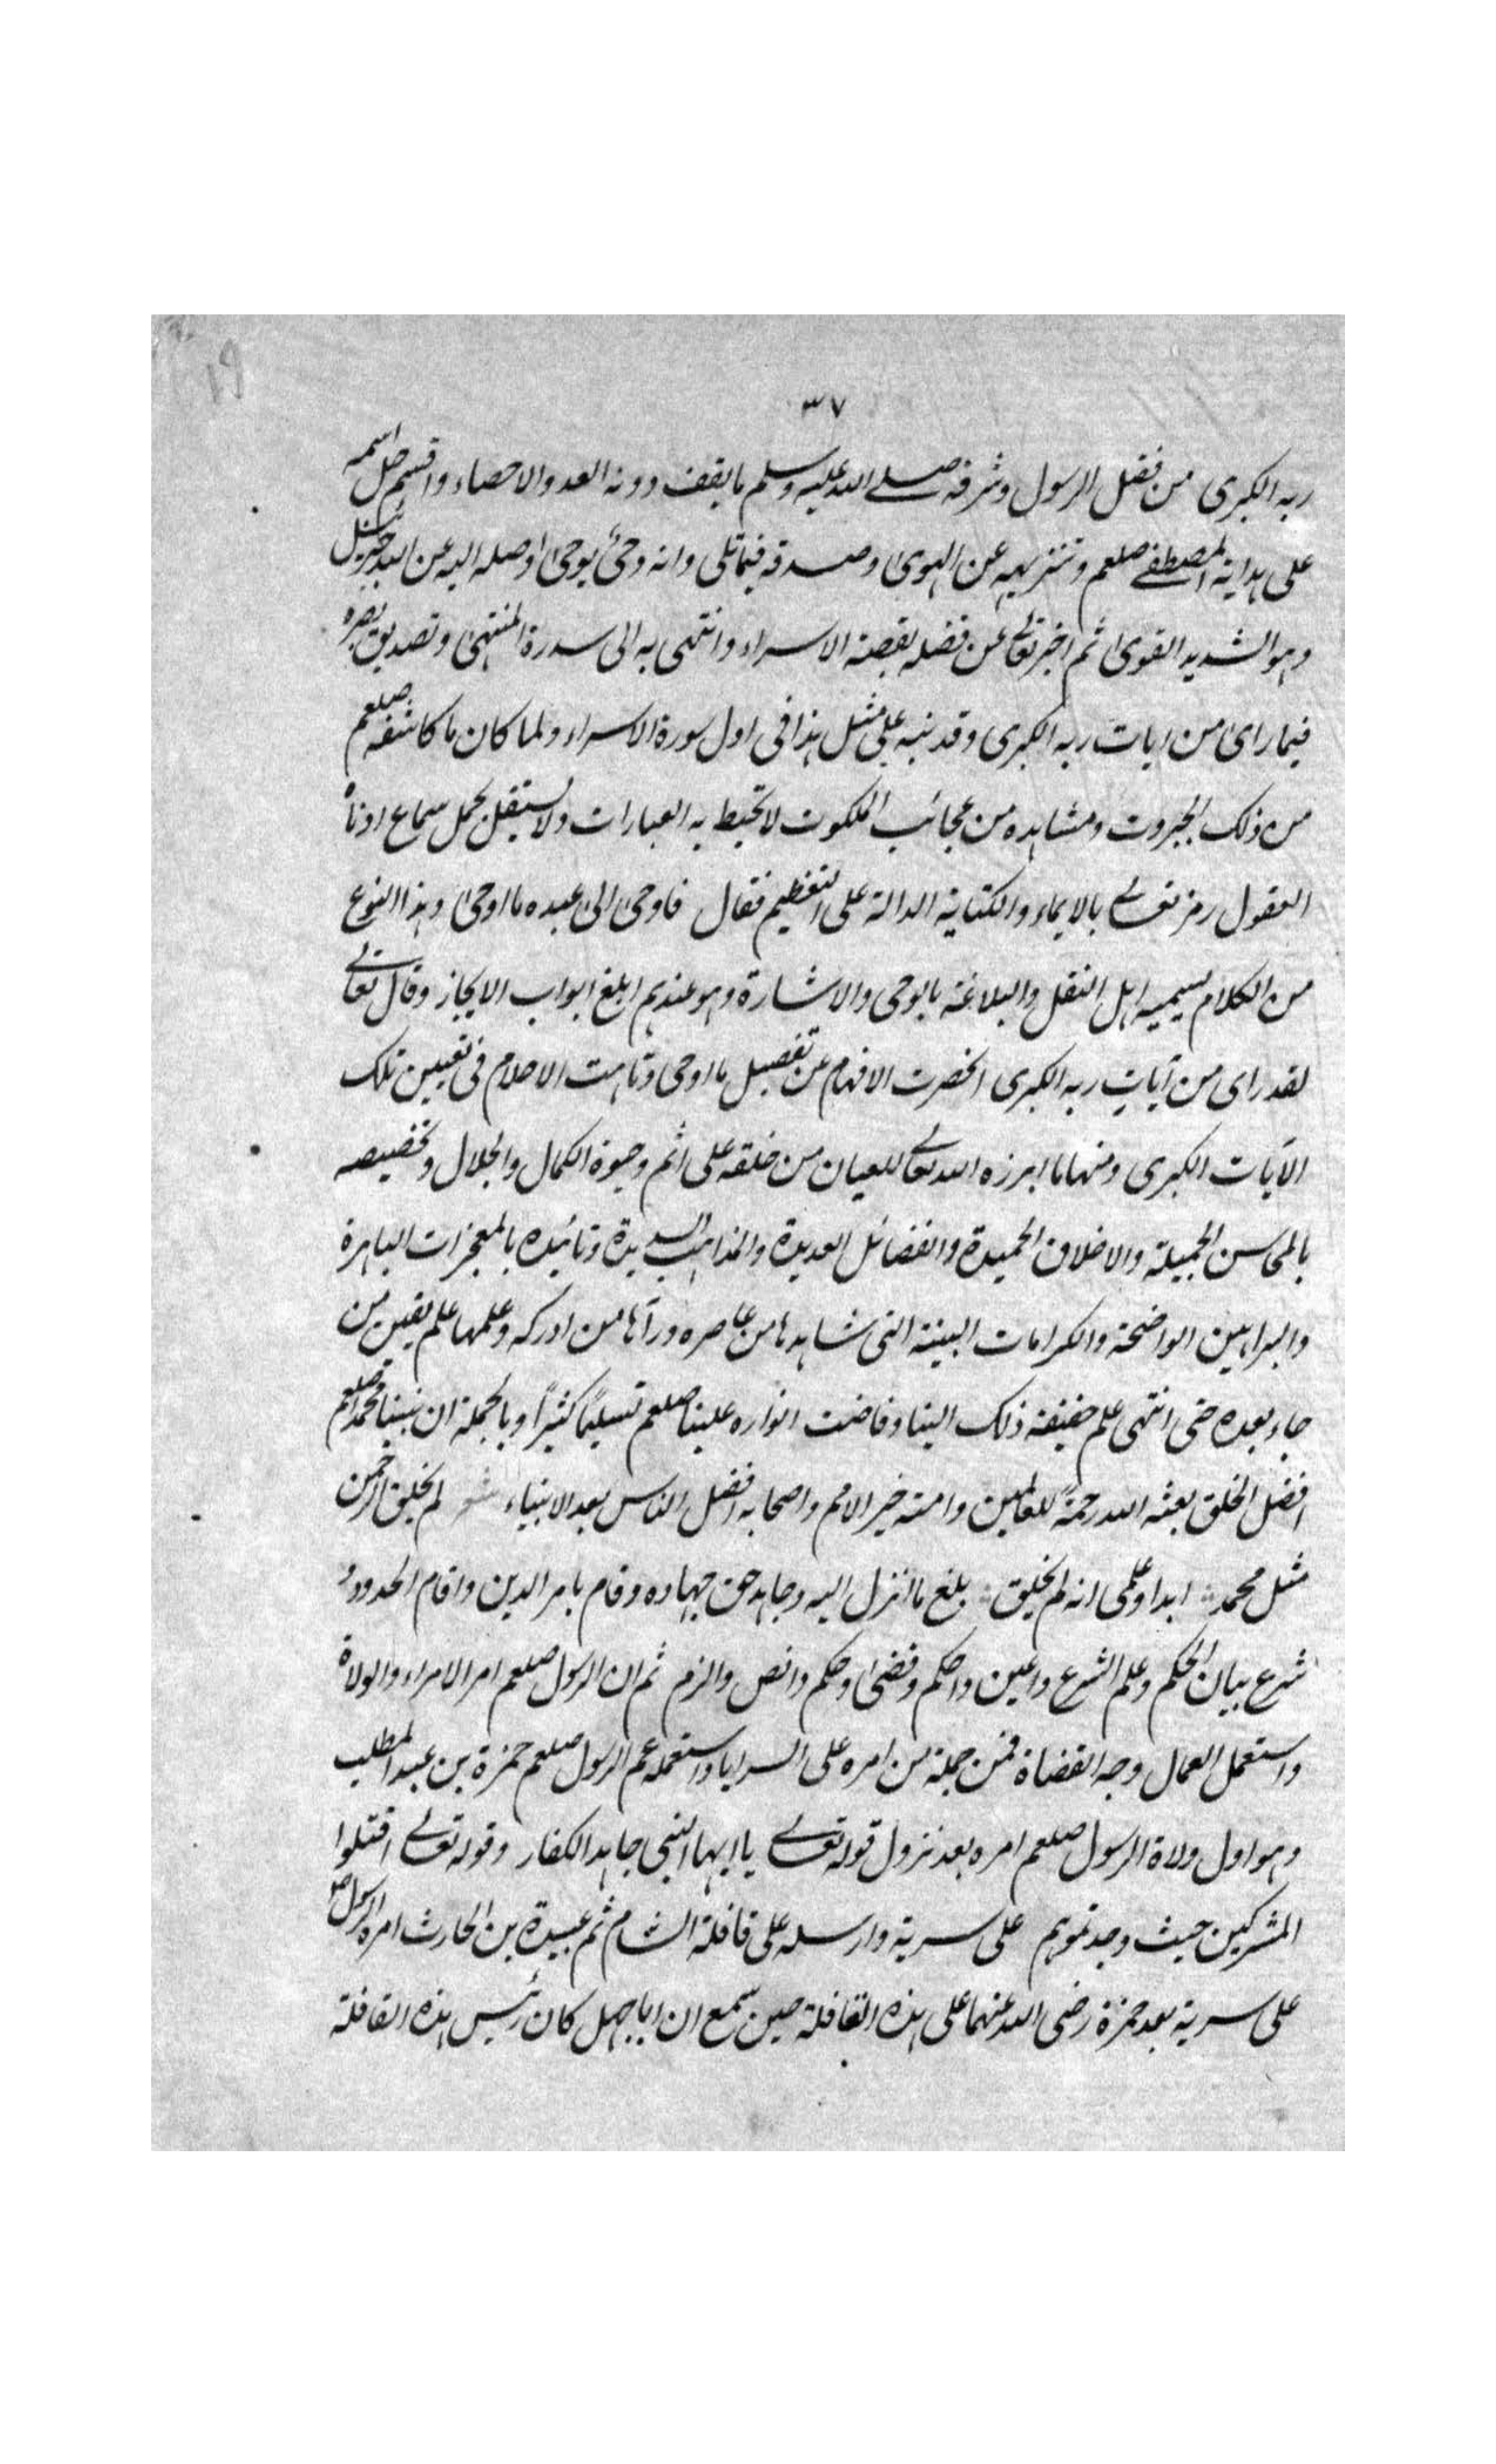 ١٩
٣٧
ربه الكبرى من فضل الرسول وشرفه صلى الله عليه وسلم ما يقف دونه العد والاحصاء واقسم جل اسمه
على هداية المصطفى صلعم وتنزيهه عن الهوى وصدقه فيما تلى وانه وحي يوحى اوصله اليه عن الله جبريل
وهو الشديد القوى ثم اخبر تعالى عن فضله بقصة الاسراء وانتهى به الى سدرة المنتهى وتصديق بصره
فيما راى من ايات ربه الكبرى وقد نبه على مثل هذا في اول سورة الاسراء ولما كان ما كاشفه صلعم
من ذلك الجبروت ومشاهده من عجائب الملكوت لا تحيط به العبارات ولا يستقل بحمل سماع ادناه
العقول رمز تعالى بالايماء والكناية الدالة على التعظيم فقال فاوحى الى عبده ما اوحى وهذا النوع
من الكلام يسميه اهل النقل والبلاغة بالوحى والاشارة وهو عندهم ابلغ ابواب الايجاز وقال تعالى
لقد راى من آيات ربه الكبرى انحصرت الافهام عن تفصيل ما اوحى وتاهت الاحلام في تعيين تلك
الآيات الكبرى ومنها ما ابرزه الله تعالى للعيان من خلقه على اتم وجوة الكمال والجلال وتخصيصه
بالمحاسن الجميلة والاخلاق الحميدة والفضائل العديدة والمذاهب السديدة وتائيده بالمعجزات الباهرة
والبراهين الواضحة والكرامات البينة التى شاهدها من عاصره ورآها من ادركه وعلمها علم يقين من
جاء بعده حتى انتهى علم حقيقة ذلك الينا وفاضت انواره علينا صلعم تسليمًا كثيرًا وبالجملة ان نبينا محمدا صلعم
افضل الخلق بعثه الله رحمةً للعالمين وامته خير الامم واصحابه افضل الناس بعد الانبياء شعر لم يخلق الرحمن
مثل محمد ابدا وعلمى انه لم يخلق بلغ ما انزل اليه وجاهد حق جهاده وقام بامر الدين واقام الحدود و
شرع بيان الحكم وعلم الشرع واعين واحكم وقضى وحكم وانص والزم ثم ان الرسول صلعم امر الامراء والولاة
واستعمل العمال وجه القضاة فمن جملة من امره على السرايا واستعمله عم الرسول صلعم حمزة بن عبد المطلب
وهو اول ولاة الرسول صلعم امره بعد نزول قوله تعالى يا ايها النبى جاهد الكفار وقوله تعالى اقتلوا
المشركين حيث وجدتموهم على سرية وارسله على قافلة الشام ثم عبيدة بن الحارث امره الرسول ص
على سرية بعد حمزة رضى الله عنهما على هذه القافلة حين سمع ان اباجهل كان رئيس هذه القافلة